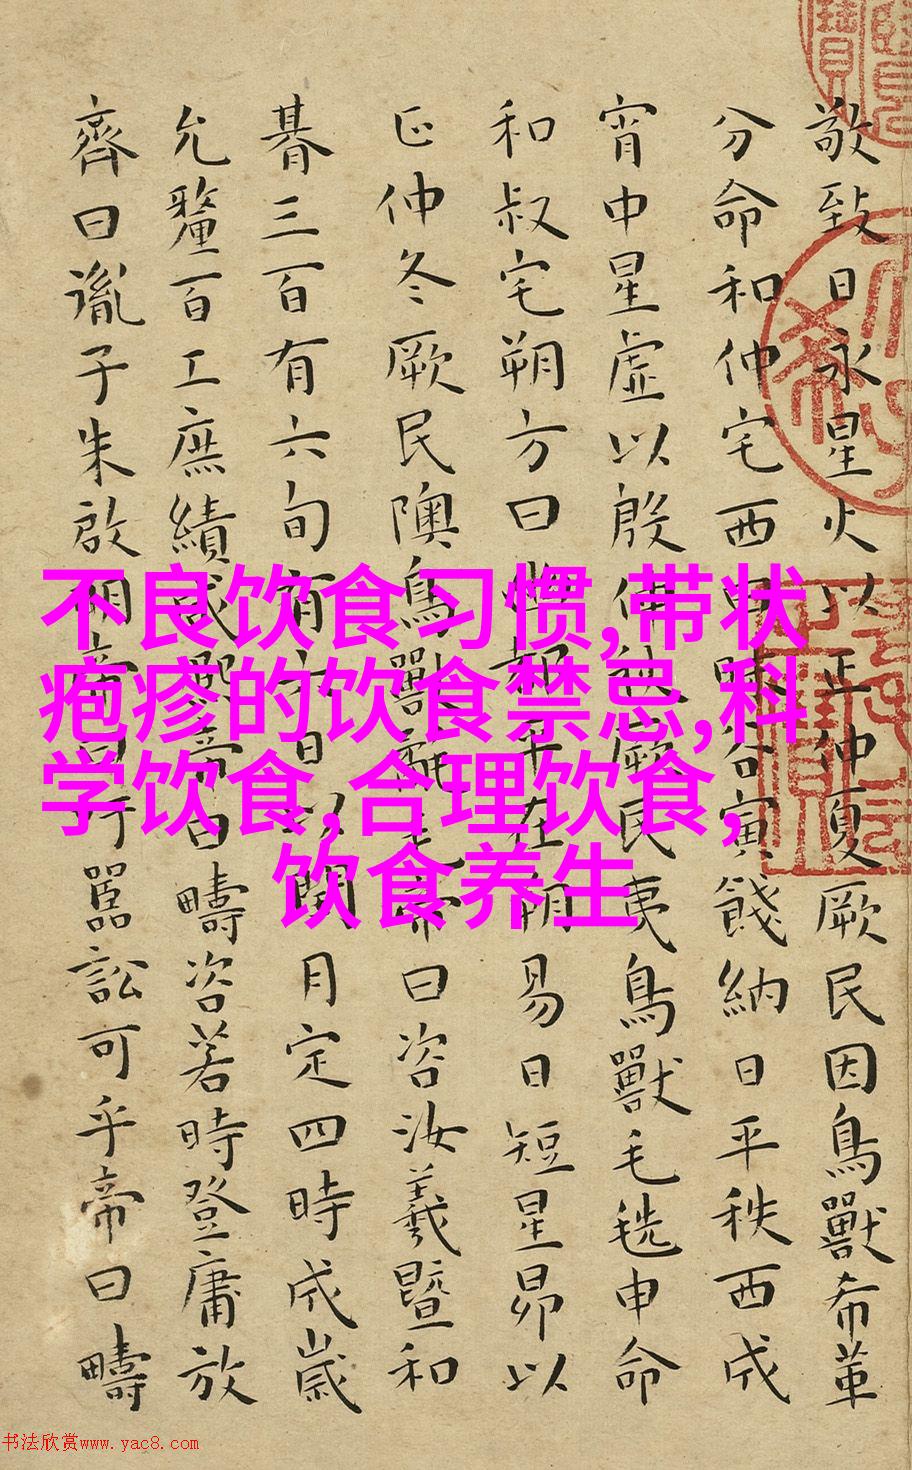 敬致日永星火以正仲夏厥民因鳥獸希革
分命和仲宅西曰昧谷寅餞納日平秩西成
宵中星虛以殷仲秋厥民夷鳥獸毛毨申命
和叔宅朔方曰幽都平在朔易日短星昴以
正仲冬厥民隩鳥獸氄毛帝曰咨汝羲暨和
朞三百有六旬有六日以閏月定四時成歲
允釐百工庶績咸熙帝曰疇咨若時登庸放
齊曰胤子朱啟明帝曰吁嚚訟可乎帝曰疇
不良饮食习惯,带状
疱疹的饮食禁忌,科
学饮食,合理饮食,
饮食养生
书法欣赏www.yac8.com